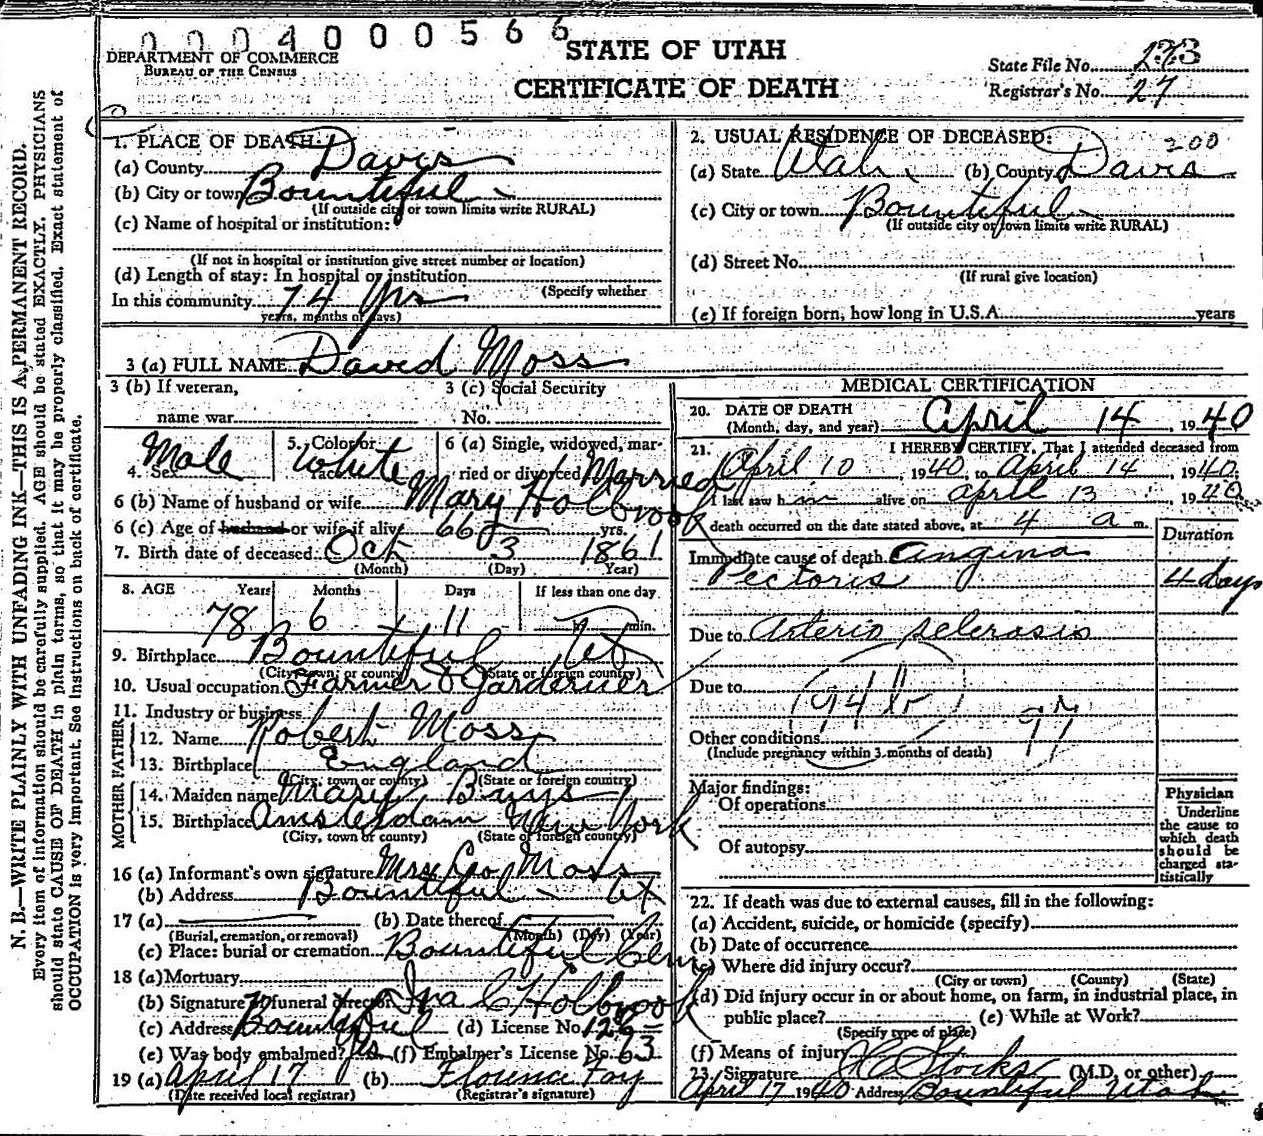 0004000566
STATE OF UTAH
CERTIFICATE OF DEATH
DEPARTMENT OF COMMERCE
BUREAU OF THE CENSUS
State File No. 273
Registrar's No. 27
N. B.—WRITE PLAINLY WITH UNFADING INK—THIS IS A PERMANENT RECORD.
Every item of information should be carefully supplied. AGE should be stated EXACTLY. PHYSICIANS
should state CAUSE OF DEATH in plain terms, so that it may be properly classified. Exact statement of
OCCUPATION is very important. See Instructions on back of certificate.
1. PLACE OF DEATH:
(a) County Davis
(b) City or town Bountiful
(If outside city or town limits write RURAL)
(c) Name of hospital or institution:
(If not in hospital or institution give street number or location)
(d) Length of stay: In hospital or institution
(Specify whether
In this community 74 yrs
years, months or days)
2. USUAL RESIDENCE OF DECEASED: 200
(a) State Utah (b) County Davis
(c) City or town Bountiful
(If outside city or town limits write RURAL)
(d) Street No.
(If rural give location)
(e) If foreign born, how long in U.S.A. years
3 (a) FULL NAME David Moss
3 (b) If veteran,
name war
3 (c) Social Security
No.
4. Sex Male
5. Color or
race White
6 (a) Single, widowed, mar-
ried or divorced Married
6 (b) Name of husband or wife Mary Holbrook
6 (c) Age of husband or wife if alive 66 yrs.
7. Birth date of deceased Oct 3 1861
(Month) (Day) (Year)
8. AGE Years Months Days If less than one day
78 6 11 min.
9. Birthplace Bountiful Ut
(City, town, or county) (State or foreign country)
10. Usual occupation Farmer & Gardener
11. Industry or business
FATHER
12. Name Robert Moss
13. Birthplace England
(City, town or county) (State or foreign country)
MOTHER
14. Maiden name Mary
15. Birthplace Amsterdam New York
(City, town or county) (State or foreign country)
16 (a) Informant's own signature Mrs Geo Moss
(b) Address Bountiful - Ut
17 (a) (b) Date thereof
(Burial, cremation, or removal) (Month) (Day) (Year)
(c) Place: burial or cremation Bountiful Cem
18 (a) Mortuary
(b) Signature of funeral director Ira C Holbrook
(c) Address Bountiful (d) License No.
(e) Was body embalmed? yes (f) Embalmer's License No. 63
19 (a) April 17 (b) Florence Foy
(Date received local registrar) (Registrar's signature)
MEDICAL CERTIFICATION
20. DATE OF DEATH
(Month, day, and year) April 14, 1940
21. I HEREBY CERTIFY, That I attended deceased from
April 10, 1940 to April 14, 1940
I last saw him alive on April 13 1940
death occurred on the date stated above, at 4 a m.
Duration
Immediate cause of death Angina
Pectoris 4 days
Due to Arterio sclerosis
Due to
94 b
97
Other conditions
(Include pregnancy within 3 months of death)
Major findings:
Of operations
Of autopsy
Physician
Underline
the cause to
which death
should be
charged sta-
tistically
22. If death was due to external causes, fill in the following:
(a) Accident, suicide, or homicide (specify)
(b) Date of occurrence
(c) Where did injury occur?
(City or town) (County) (State)
(d) Did injury occur in or about home, on farm, in industrial place, in
public place? (e) While at Work?
(Specify type of place)
(f) Means of injury
23. Signature Stocks (M.D. or other)
April 17 1940 Address Bountiful Utah